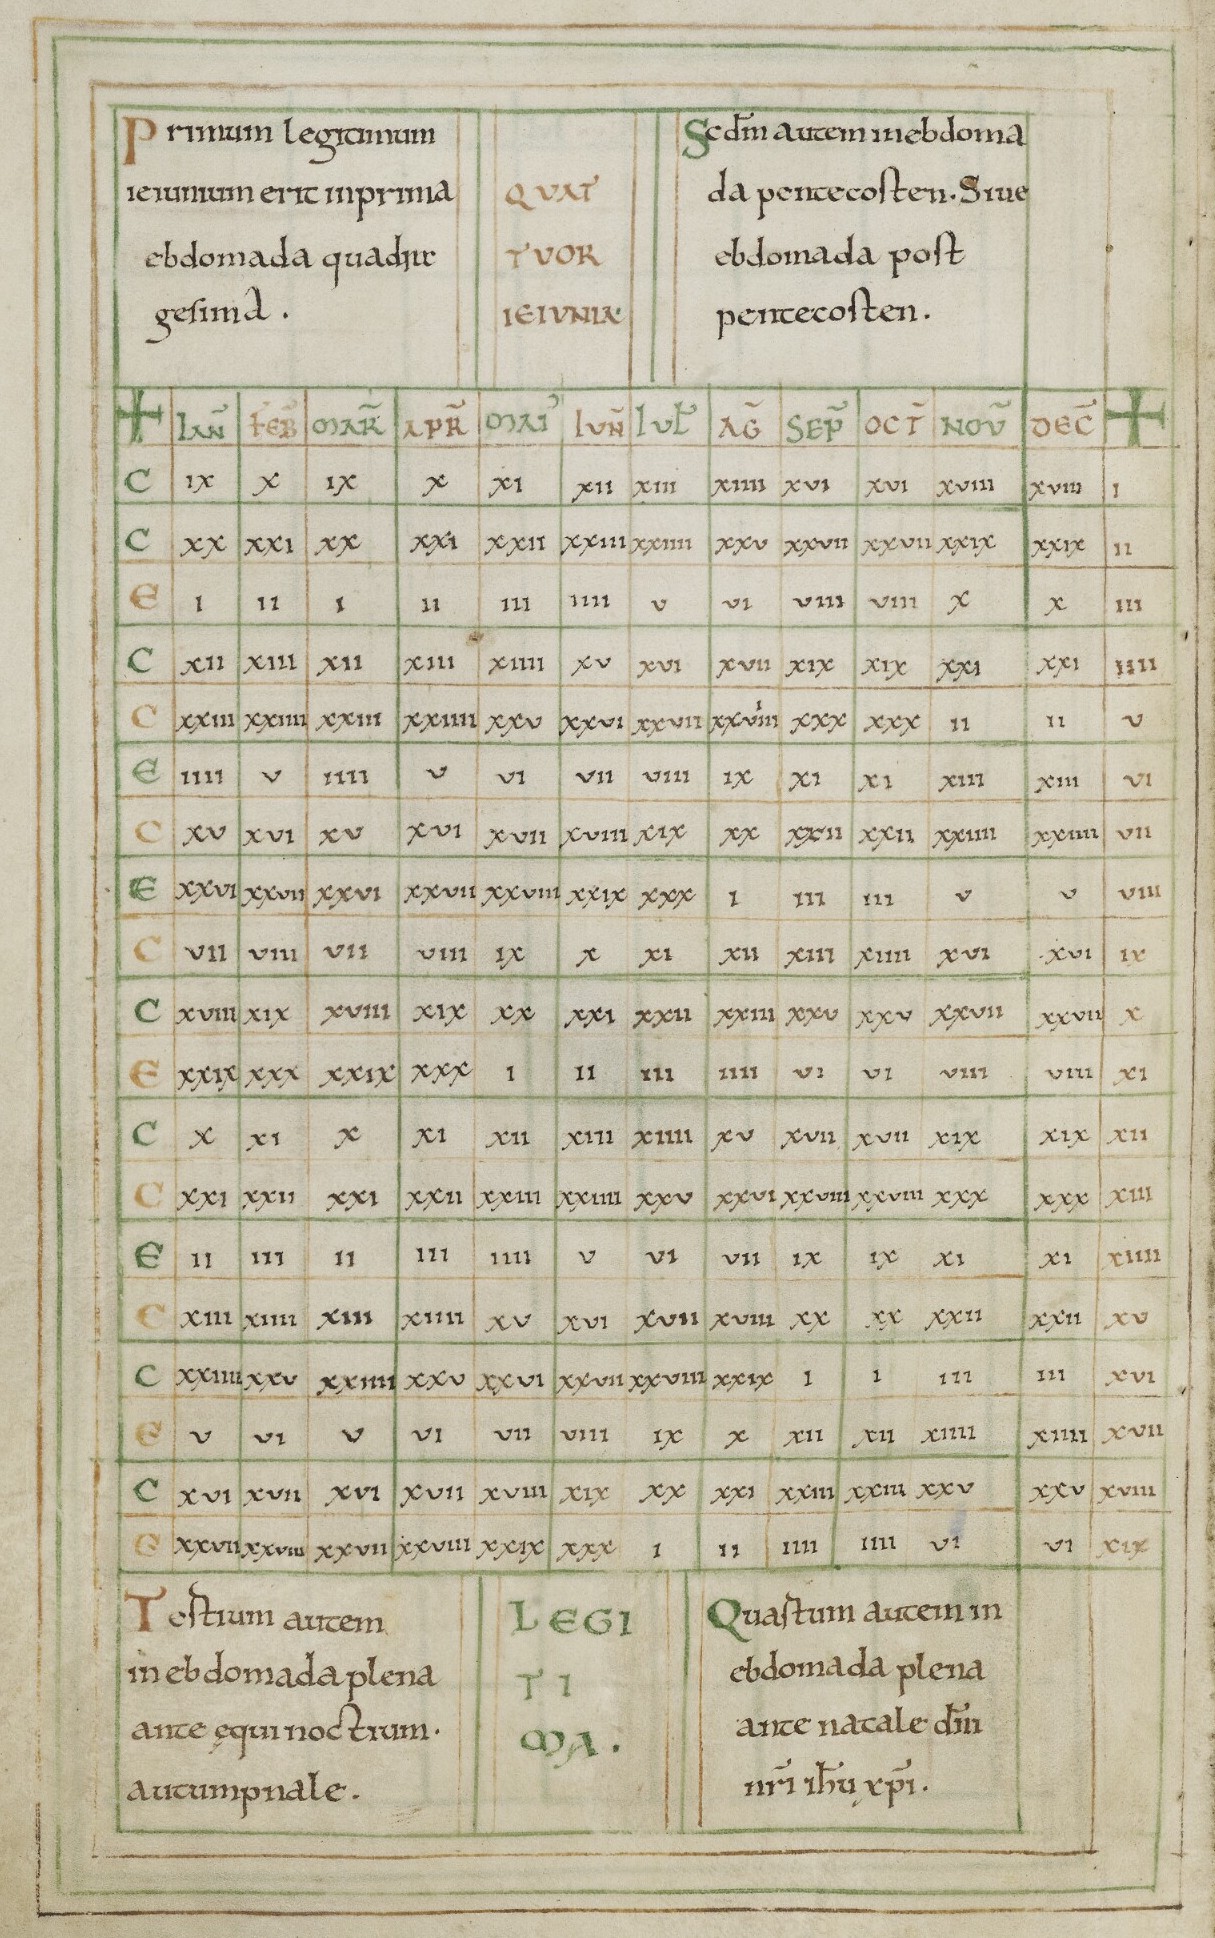 Primum legitimum
ieiunium erit in prima
ebdomada quadra
gesima.
QUAT
TUOR
IEIUNIA
Scdm autem in ebdoma
da pentecosten. Siue
ebdomada post
pentecosten.
+ IAN̄ FEB̄ MAR̄ APR̄ MAI IUN̄ IUL̄ AḠ SEP̄ OCT̄ NOV̄ DEC̄ +
C ix x ix x xi xii xiii xiiii xvi xvi xviii xviii i
C xx xxi xx xxi xxii xxiii xxiiii xxv xxvii xxvii xxix xxix ii
E i ii i ii iii iiii v vi viii viii x x iii
C xii xiii xii xiii xiiii xv xvi xvii xix xix xxi xxi iiii
C xxiii xxiiii xxiii xxiiii xxv xxvi xxvii xxviii xxx xxx ii ii v
E iiii v iiii v vi vii viii ix xi xi xiii xiii vi
C xv xvi xv xvi xvii xviii xix xx xxii xxii xxiiii xxiiii vii
E xxvi xxvii xxvi xxvii xxviii xxix xxx i iii iii v v viii
C vii viii vii viii ix x xi xii xiii xiiii xvi xvi ix
C xviii xix xviii xix xx xxi xxii xxiii xxv xxv xxvii xxvii x
E xxix xxx xxix xxx i ii iii iiii vi vi viii viii xi
C x xi x xi xii xiii xiiii xv xvii xvii xix xix xii
C xxi xxii xxi xxii xxiii xxiiii xxv xxvi xxviii xxviii xxx xxx xiii
E ii iii ii iii iiii v vi vii ix ix xi xi xiiii
C xiii xiiii xiii xiiii xv xvi xvii xviii xx xx xxii xxii xv
C xxiiii xxv xxiiii xxv xxvi xxvii xxviii xxix i i iii iii xvi
E v vi v vi vii viii ix x xii xii xiiii xiiii xvii
C xvi xvii xvi xvii xviii xix xx xxi xxiii xxiii xxv xxv xviii
E xxvii xxviii xxvii xxviii xxix xxx i ii iiii iiii vi vi xix
Testium autem
in ebdomada plena
ante ęquinoctium.
autumpnale.
LEGI
TI
MA.
Quastum autem in
ebdomada plena
ante natale dn̄i
nr̄i ih̄u xp̄i.